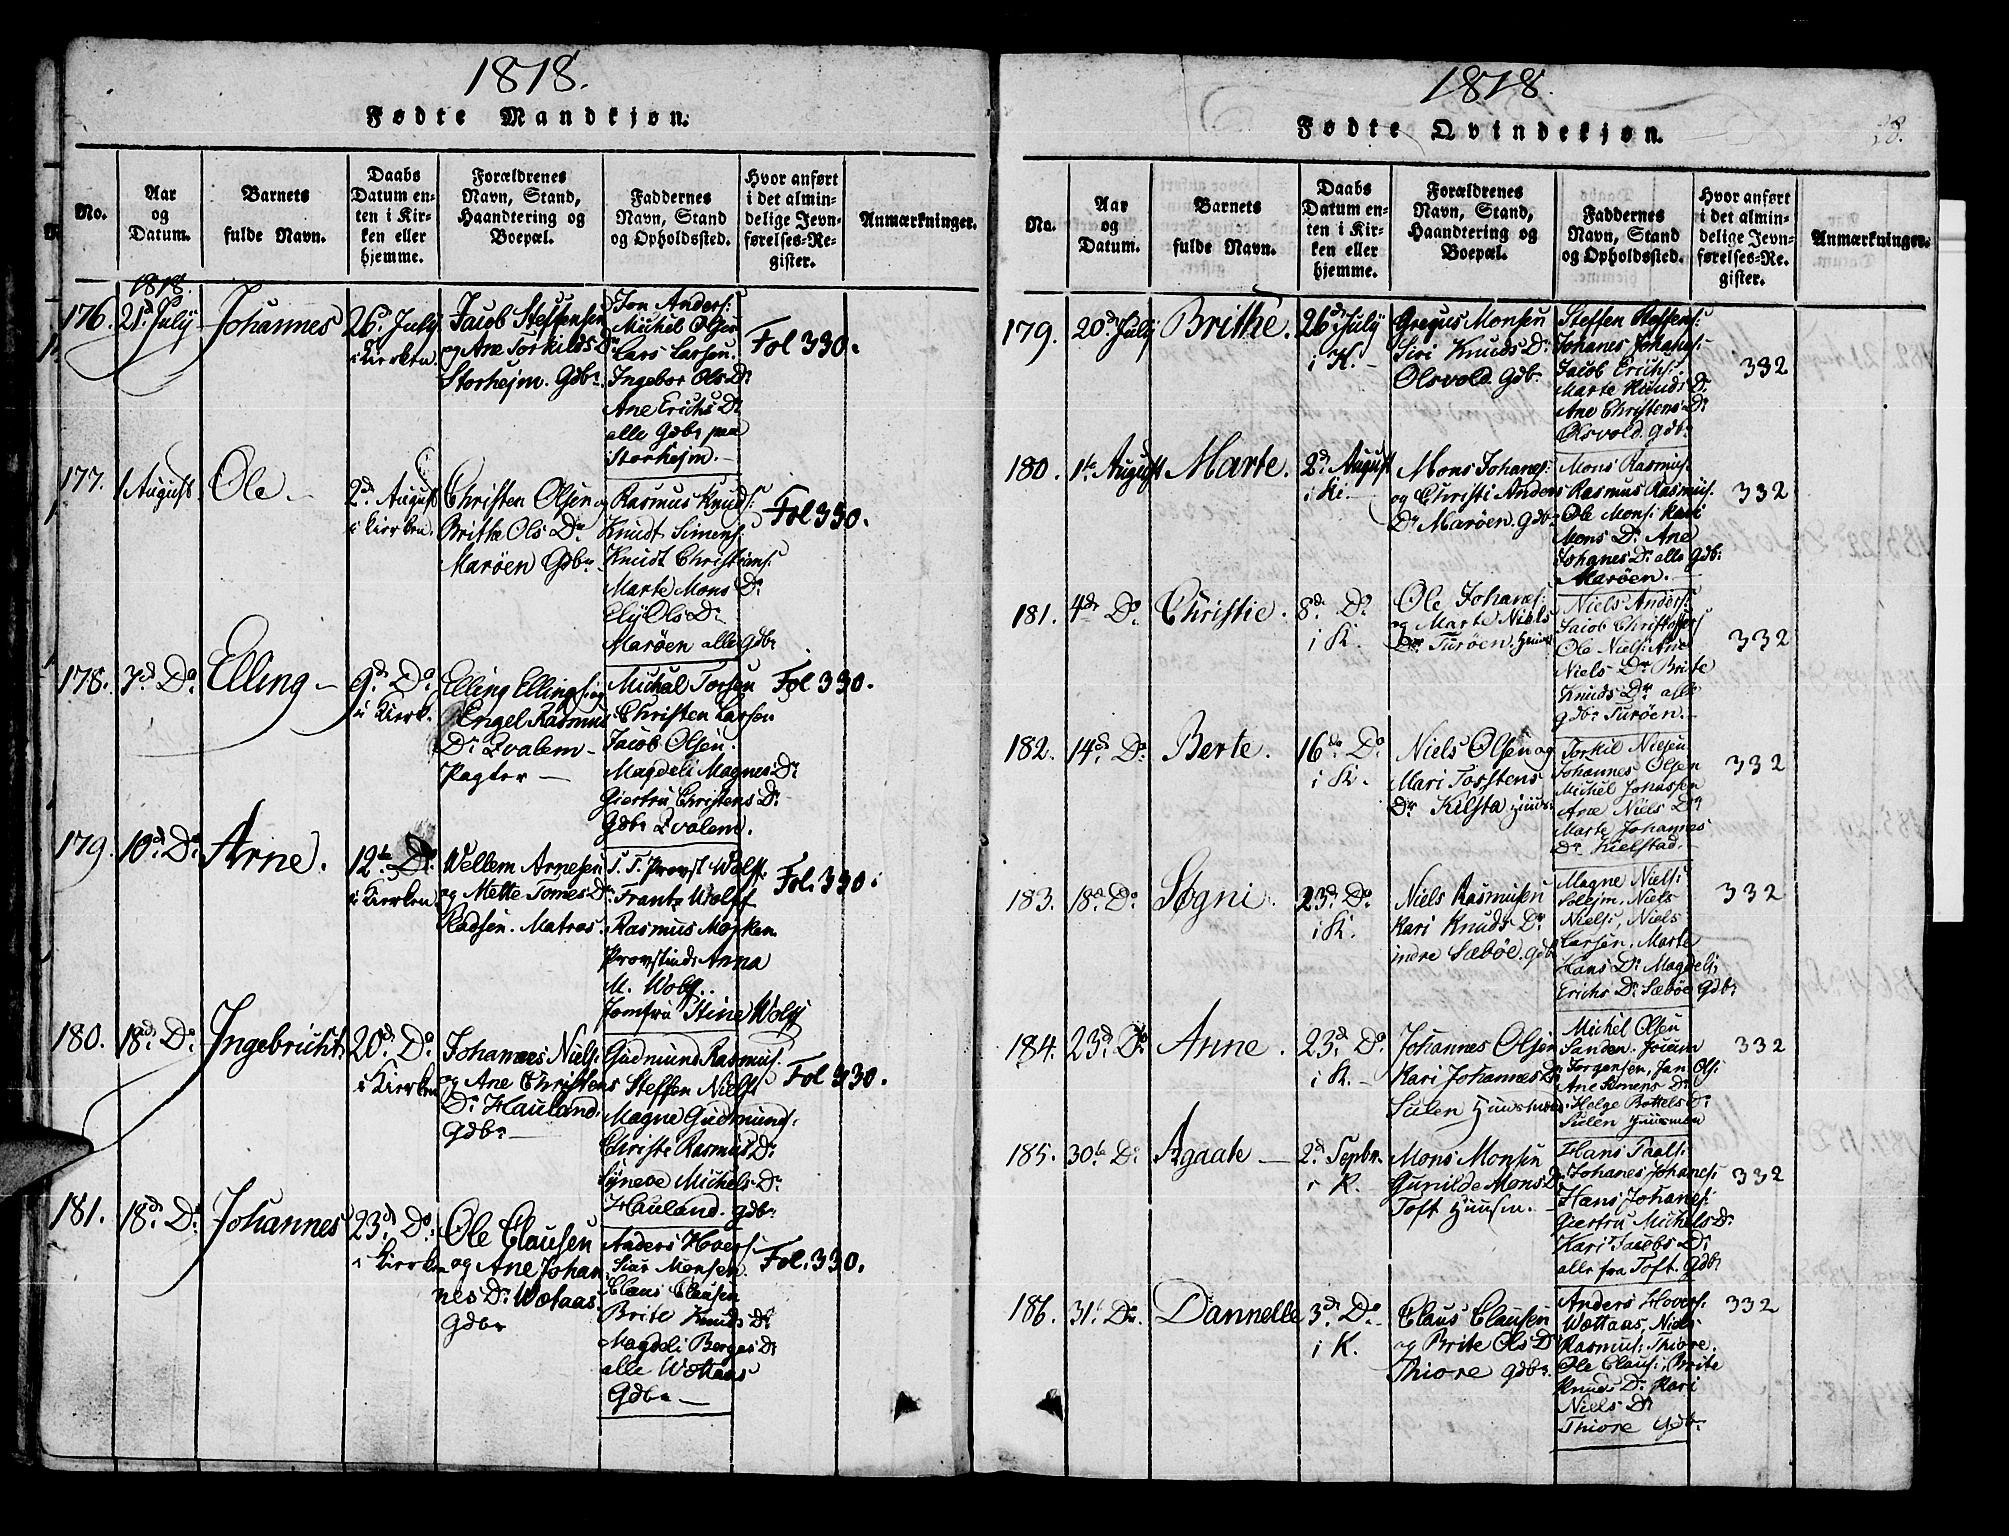 1818.
Fødte Mandkjøn.
No.
Aar
og
Datum.
Barnets
fulde Navn.
Daabs
Datum en-
ten i Kir-
ken eller
hjemme.
Forældrenes
Navn, Stand,
Haandtering og
Boepæl.
Faddernes
Navn, Stand
og Opholdssted.
Hvor anført
i det almin-
delige Jevn-
førelses-Re-
gister.
Anmærkninger.
1818.
176.
21d July
Johannes
26d July
i Kirken
Jacob Steffensen
og Ane Torkilds Dr
Storhejm. Gdbr.
Jon Anders:
Michel Olsen
Lars Larsen
Ingebor Ols Dr
Ane Erichs Dr
alle Gdbr paa
Storhejm.
Fol 330.
177.
1 August
Ole
2d August
i Kirken
Christen Olsen og
Brithe Ols Dr
Marøen Gdbr.
Rasmus Knud:
Knudt Simens:
Knudt Christians:
Marte Mons Dr
Ely Ols Dr
Marøen alle Gdbr
Fol 330.
178.
7d Do
Elling
9d Do
i Kirk.
Elling Ellings: og
Engel Rasmus
Dr Qvalem
Pagter
Michal Torsen
Christen Larsen
Jacob Olsen.
Magdeli Magnes Dr
Giertru Christens Dr
Gdbr Qvalem.
Fol 330.
179.
10d Do
Arne.
12te Do
i Kirken
Wellem Arnesen
og Mette Tomes Dr
Kladsen. Matros.
S. T. Provst Wolff
Frantz Wolff
Rasmus Morken
Provstinde Anna
M. Wolff..
Jomfru Stine Wolff
Fol. 330.
180.
18d Do
Ingebricht
20d Do
i Kirken
Johannes Niels:
og Ane Christens
Dr Hauland.
Gdbr
Gudmund Rasmus:
Steffen Niels:
Magne Gudmund:
Christe Rasmus Dr
Syneve Michels Dr
Hauland. Gdbr
Fol 330.
181.
18d Do
Johannes
23d Do
i Kirken
Ole Clausen
og Ane Johan
nes Dr Wætaas.
Gdbr
Anders Hovers:
Siur Monsen
Claus Clausen
Brite Knuds Dr
Magdeli Berges Dr
alle Wættaas
Gdbr
Fol. 330.
1818.
28.
Fødte Qvindekjøn.
No.
Aar
og
Datum.
Barnets
fulde Navn.
Daabs
Datum en-
ten i Kir-
ken eller
hjemme.
Forældrenes
Navn, Stand,
Haandtering og
Boepæl.
Faddernes
Navn, Stand
og Opholdssted.
Hvor anført
i det almin-
delige Jevn-
førelses-Re-
gister.
Anmærkninger.
179.
20d July
Brithe.
26d July
i K.
Gregus Monsen
Siri Knuds Dr
Olsvold. Gdbr
Steffen Steffens:
Johanes Johanes:
Jacob Erichs:
Marte Knuds Dr
Ane Christens Dr
Olsvold. Gdbr
332
180.
1te August
Marte.
2d August
i Ki.
Mons Johanes:
og Christi Anders
Dr Marøen. Gdbr
Mons Rasmus:
Rasmus Rasmus:
Ole Mons: Kari
Mons Dr Ane
Johanes Dr alle Gdbr
Marøen.
332
181.
4de Do
Christie.
8de Do
i K.
Ole Johanes:
og Marte Niels
Dr Turøen. Huusm
Niels Anders:
Jacob Christoffers
Ole Niels: Ane
Niels Dr Brite
Knuds Dr alle
Gdbr Turøen.
332
182.
14d Do
Berte.
16de Do
i K.
Niels Olsen og
Mari Torstens
Dr Kilsta Huus:
Torkil Nielsen
Johannes Olsen
Michel Johnssen
Ane Niels Dr
Marte Johannes
Dr Kielstad.
332
183.
18d Do
Søgni.
23d Do
i K.
Niels Rasmusen
Kari Knuds Dr
indre Sæbøe. Gdbr
Magne Niels:
Solejm, Niels
Niels:, Niels
Larsen, Marte
Hans Dr Magdeli
Erichs Dr Sæbøe Gdbr
332
184.
23d Do
Anne.
23d Do
i K.
Johannes Olsen
Kari Johannes Dr
Sulen Huusmand
Michel Olsen
Sanden. Jocum
Jørgensen, Jan Ols:
Ane Simens Dr
Helge Bottels Dr
Sulen Huusmen
332
185.
30te Do
Agaate
2d Sepbr.
i K.
Mons Monsen
Gunilde Mons Dr
Toft Huusm.
Hans Paals:
Johanes Johanes:
Hans Johanes:
Giertru Michels Dr
Kari Jacobs Dr
alle fra Toft. Gdbr
332
186.
31te Do
Dannelle
3d Do
i K.
Claus Clausen
og Brite Ols Dr
Thiore Gdbr.
Anders Hovers:
Wættaas, Niels
Rasmus: Thiore.
Ole Claus:, Brite
Knuds Dr Kari
Niels Dr
Thiore Gdbr.
332